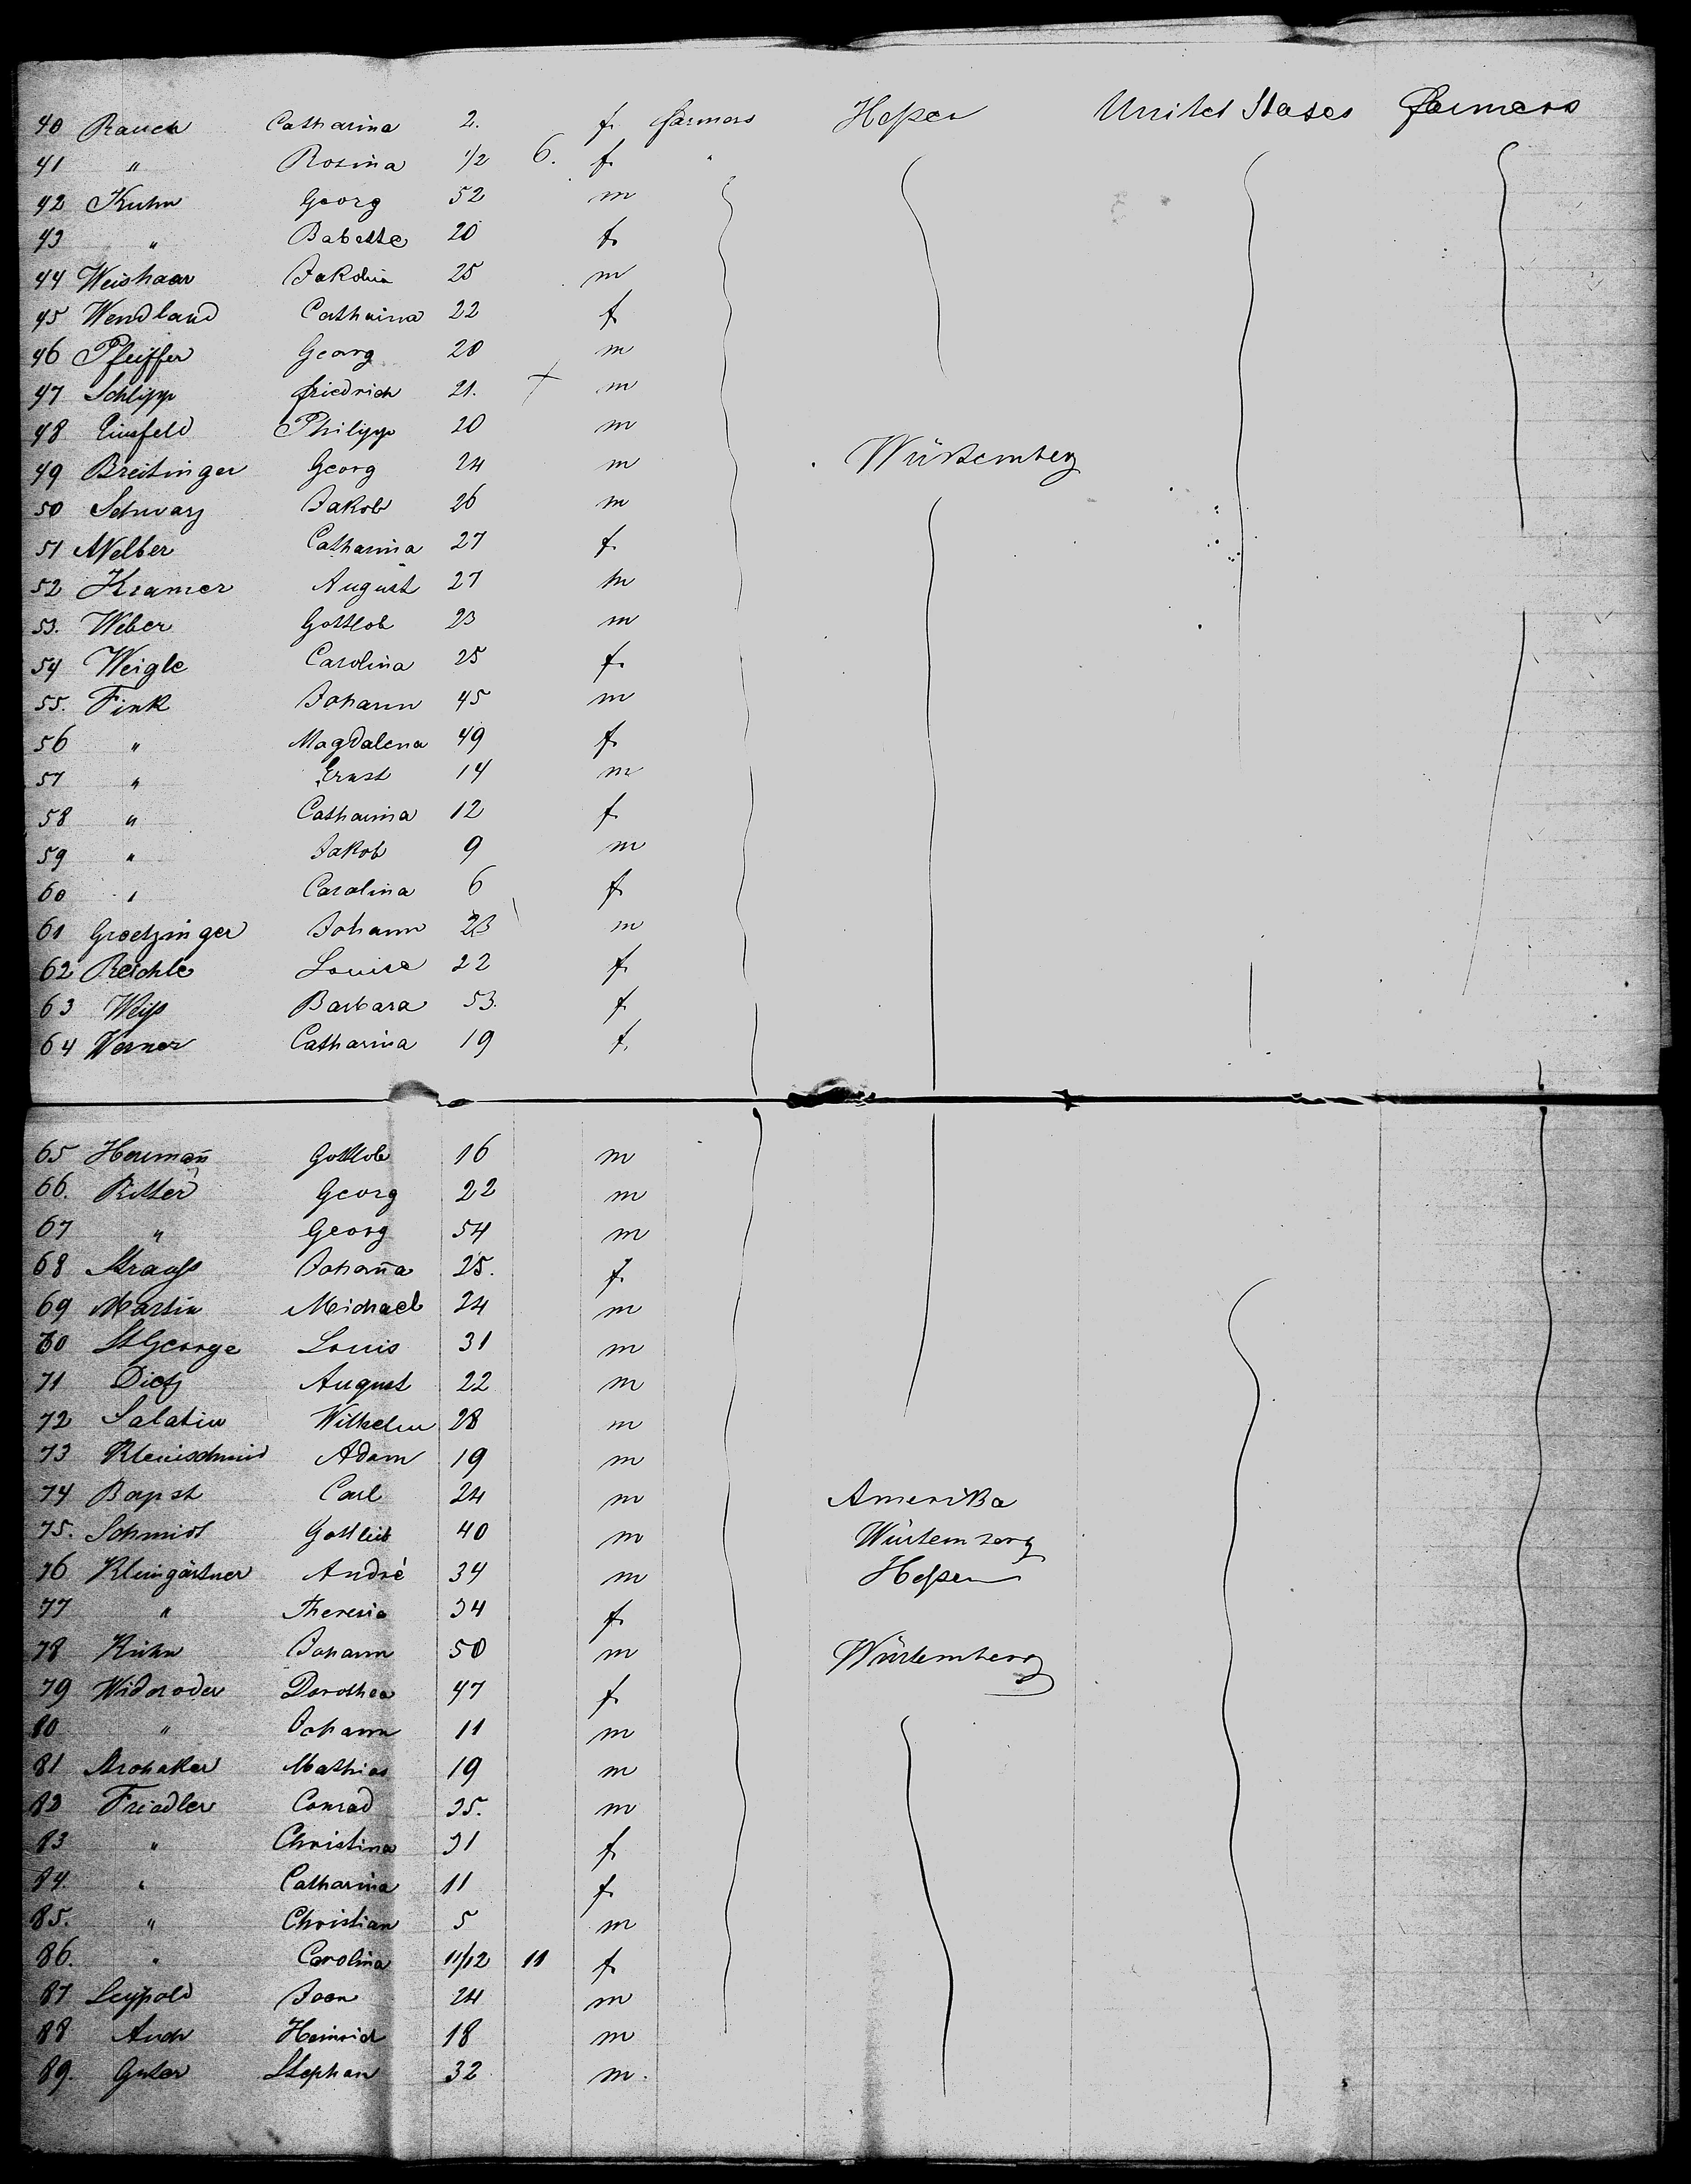 40 Rauch Catharina 2. f. farmers Heßen United States farmers
41 " Rosina 1/2 6. f. "
42 Kuhn Georg 52 m
43 " Babette 20 f.
44 Weishaar 25 m
45 Wendland Catharina 22 f.
46 Pfeiffer Georg 20 m
47 Schlipp friedrich 21. + m
48 Einsfeld Philipp 20 m
49 Breitinger Georg 24 m Würtemberg
50 Schwarz Jakob 26 m
51 Catharina 27 f.
52 Kramer August 27 m
53. Weber Gottlob 23 m
54 Weigle Carolina 25 f.
55. Fink Johann 45 m
56 " Magdalena 49 f.
57 " Ernst 14 m
58 " Catharina 12 f.
59 " Jakob 9 m
60 " Carolina 6 f.
61 Groetzinger Johann 23 m
62 Reichle Louise 22 f.
63 Weiß Barbara 53. f.
64 Werner Catharina 19 f.
65 Hermañ Gottlob 16 m
66. Ritter Georg 22 m
67 " Georg 54 m
68 Strauß Johaña 25. f.
69 Martin Michael 24 m
70 StGeorge Louis 31 m
71 Dietz August 22 m
72 Salatin Wilhelm 28 m
73 Kleinschmid Adam 19 m
74 Bapst Carl 24 m Amerika
75. Schmidt Gottlieb 40 m Würtemberg
76 Kleingärtner André 34 m Heßen
77 " Theresia 34 f.
78 Kuhn Johann 50 m Würtemberg
79 Dorothea 47 f.
80 " Johann 11 m
81 Mathias 19 m
82 Friedler Conrad 35. m
83 " Christina 31 f.
84. " Catharina 11 f.
85. " Christian 5 m
86. " Carolina 11/12 11 f.
87 Leypold 24 m
88 Heinrich 18 m
89. Guter Stephan 32 m.